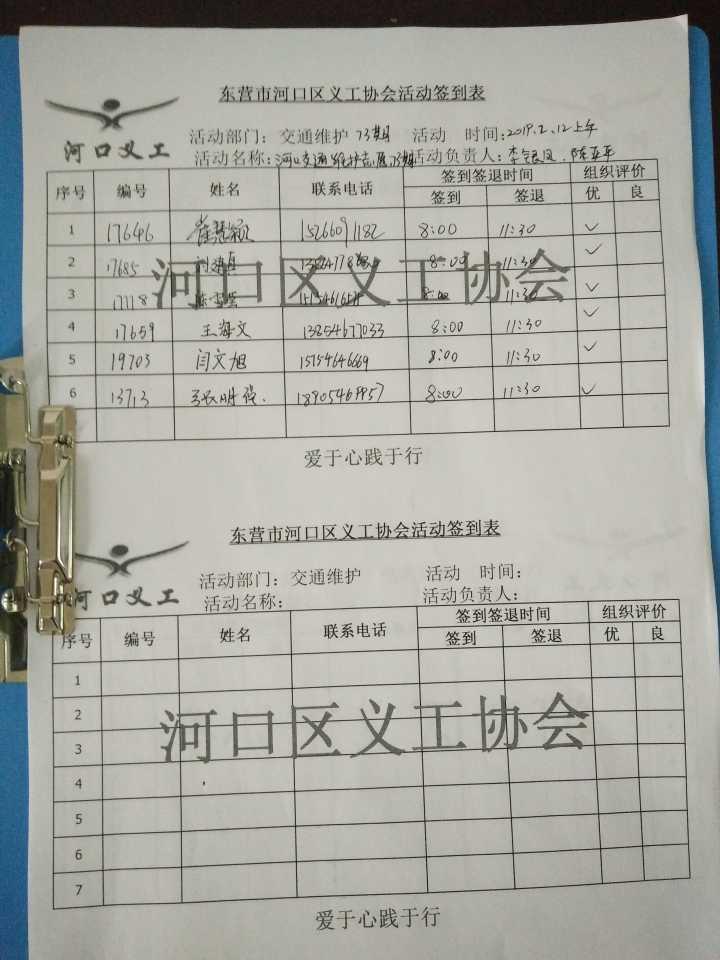 东营市河口区义工协会活动签到表
河口义工
活动部门: 交通维护 73期 活动 时间:2019.2.12上午
活动名称:河口交通维护志愿73期 活动负责人:李银凤 陈亚平
序号 编号 姓名 联系电话 签到签退时间 组织评价
签到 签退 优 良
1 17646 崔慧颖 15266091182 8:00 11:30 ✓
2 17685 8:00 11:30 ✓
3 17718 8:00 11:30 ✓
4 17659 王海文 13854677033 8:00 11:30 ✓
5 19703 闫文旭 15154646669 8:00 11:30 ✓
6 13713 张明强 8:00 11:30 ✓
河口区义工协会
爱于心践于行
东营市河口区义工协会活动签到表
河口义工
活动部门: 交通维护 活动 时间:
活动名称: 活动负责人:
序号 编号 姓名 联系电话 签到签退时间 组织评价
签到 签退 优 良
1
2
3
4
5
6
7
河口区义工协会
爱于心践于行